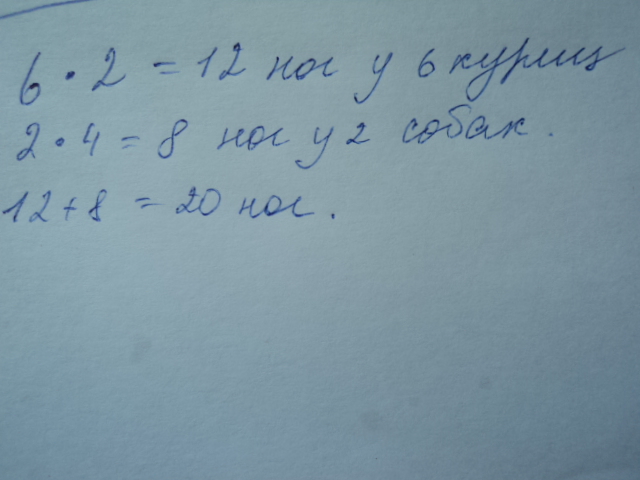 6 · 2 = 12 ног у 6 куриц
2 · 4 = 8 ног у 2 собак.
12 + 8 = 20 ног.